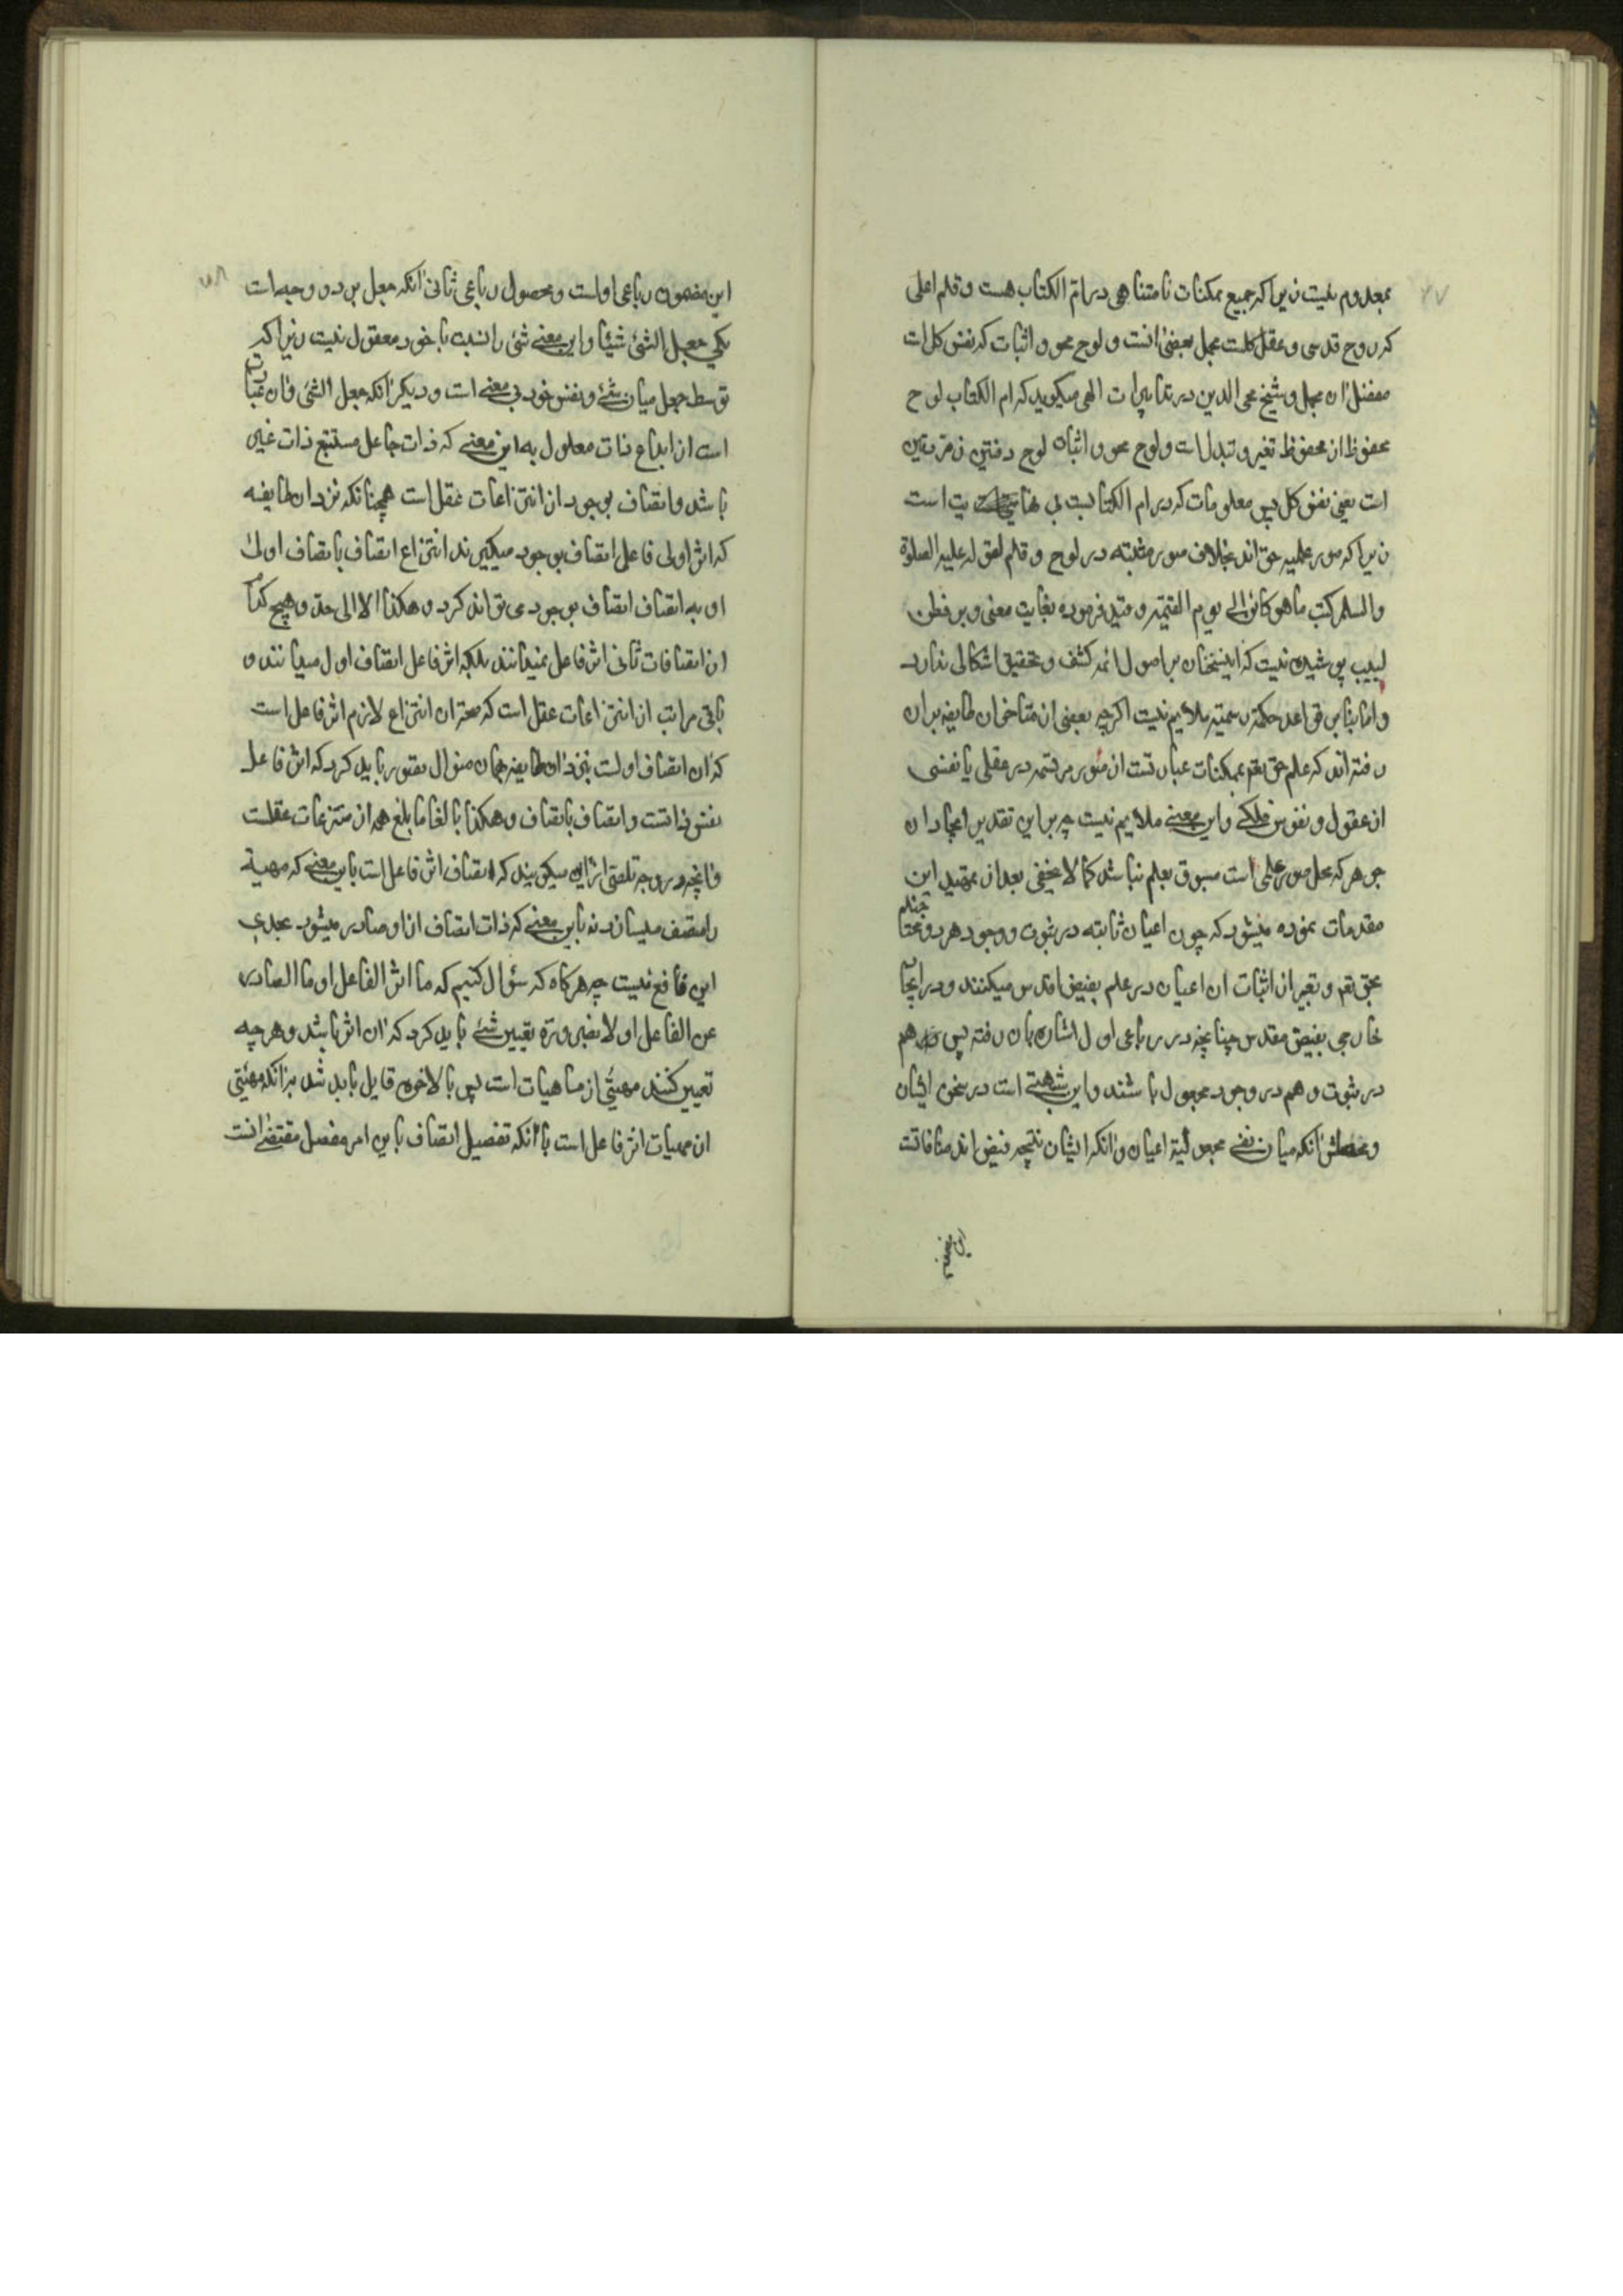 ۷۷
بمعدوم نیست زیرا که جمیع ممکنات نامتناهی در ام الکتاب هست و قلم اعلی
که روح قدسی و عقل کلست مجمل بعضی آنست و لوح محو و اثبات که نفس کل است
مفصل آن مجمل و شیخ محی الدین در تدبیرات الهی میکوید که ام الکتاب لوح
محفوظ از محفوظ تغیر و تبدل است و لوح محو و اثبات لوح
است یعنی نفس کل پس معلومات که در ام الکتابست بی نهایت است
زیرا که صور علمیه حق اند بخلاف صور مثبته در لوح و قلم لقوله علیه الصلوة
والسلم کتب ما هو کائن الی یوم القیمة و قید فرموده بغایت معنی و بر فطن
لبیب پوشیده نیست که اینسخنان بر اصول ائمه کشف و تحقیق اشکالی ندارد
و اما بنا بر قواعد حکمة رسمیه ملایم نیست اکرچه بعضی از متاخران طایفه بران
رفته اند که علم حق تعم بممکنات عبارتست از صور مرتسمه در عقلی یا نفسی
از عقول و نفوس فلکی و این معنی ملایم نیست چه بر این تقدیر ایجاد آن
جوهر که محل صور علمی است مسبوق بعلم نباشد کما لا یخفی بعد از تمهید این
مقدمات نموده میشود که چون اعیان ثابته در ثبوت و وجود هردو محتاجند
بحق تعم و تعبیر از اثبات ان اعیان در علم بفیض اقدس میکنند و در ایجاد
خارجی بفیض مقدس چنانچه در رباعی اول اشارت بان رفته پس هم
در ثبوت و هم در وجود مجعول باشند و این شبهتی است در سخن ایشان
آنکه میان نفی مجعولیة اعیان و آنکه ایشان نتیجه فیض اند منافاتست
این مضمون رباعی اولست و محصول رباعی ثانی آنکه جعل بر دو وجه است
یکی جعل الشئ شیئا و این معنی شئ را نسبت با خود معقول نیست زیرا که
توسط جعل میان شئ و نفس خود بی معنی است و دیکر آنکه جعل الشئ و ان عبارت
است از ابداع ذات معلول به این معنی که ذات جاعل مستتبع ذات غیر
باشد و اتصاف بوجود از انتزاعات عقل است همچنانکه نزد ان طایفه
که اثر اولی فاعل اتصاف بوجود میکیرند انتزاع اتصاف باتصاف اولی
او به اتصاف اتصاف بوجود می تواند کرد و هکذا الا الی حد و هیچ کدام
ان اتصافات ثانی اثر فاعل نمیدانند بلکه اثر فاعل اتصاف اول میدانند و
باقی مراتب از انتزاعات عقل است که صحة ان انتزاع لازم اثر فاعل است
که آن اتصاف اولست نزد ان طایفه همان منوال تصور باید کرد که اثر فاعل
نفس ذاتست و اتصاف باتصاف و هکذا بالغا ما بلغ همه از منتزعات عقلست
و انچه در وجه تلصی ازاین میکویند که اتصاف اثر فاعل است باین معنی که مهیة
را متصف میسازد نه باین معنی که ذات اتصاف از او صادر میشود بجدی
این نافع نیست چه هرکاه که سؤال کنیم که ما اثر الفاعل او ما الصادر
عن الفاعل اولا بضرورة تعیین شئ باید کرد که ان اثر باشد و هرچه
تعیین کنند مهیتی از ماهیات است پس بالاخره قایل باید شد بر آنکه مهیتی
از مهیات اثر فاعل است با آنکه تفصیل اتصاف باین امر مفصل مقتضی آنست